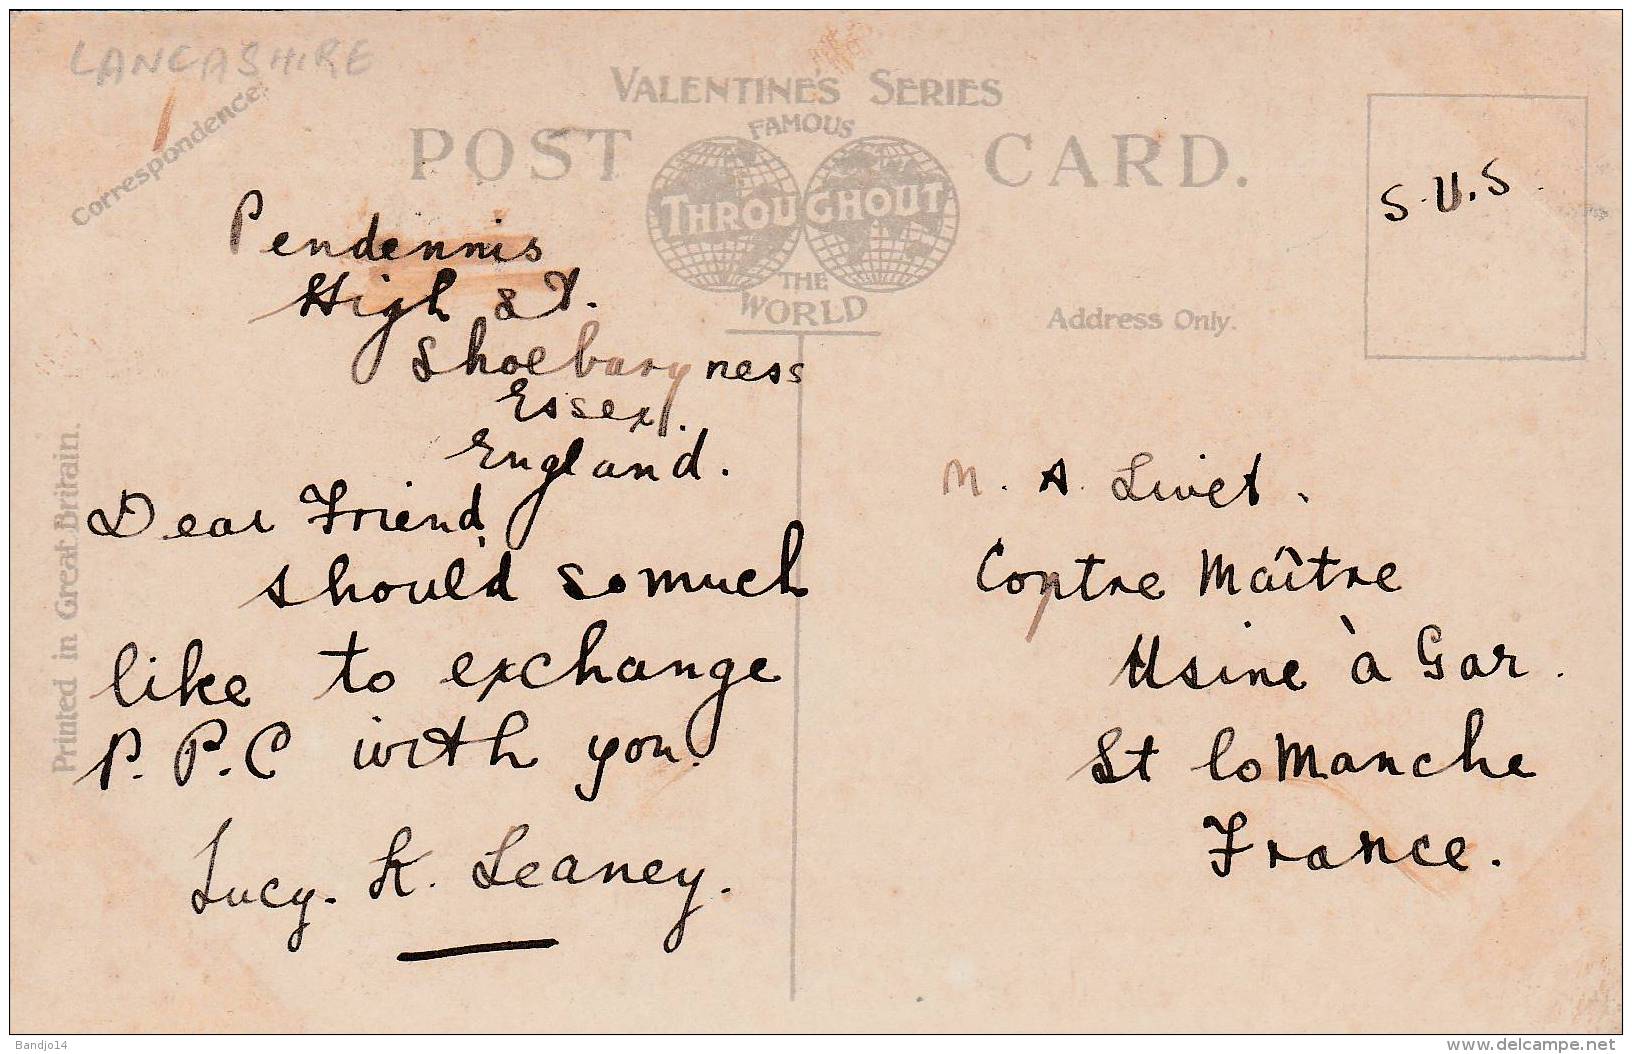 LANCASHIRE
Correspondence.
VALENTINE'S SERIES
FAMOUS
POST CARD.
THROUGHOUT
THE
WORLD
Address Only.
S.U.S.
Printed in Great Britain.
Pendennis
High St.
Shoeburyness
Essex.
England.
Dear Friend,
should so much
like to exchange
P.P.C with you.
Lucy. K. Leaney.
M. A. Livet.
Contre Maître
Usine à Gaz.
St Lo Manche
France.
Bandjo14
www.delcampe.net